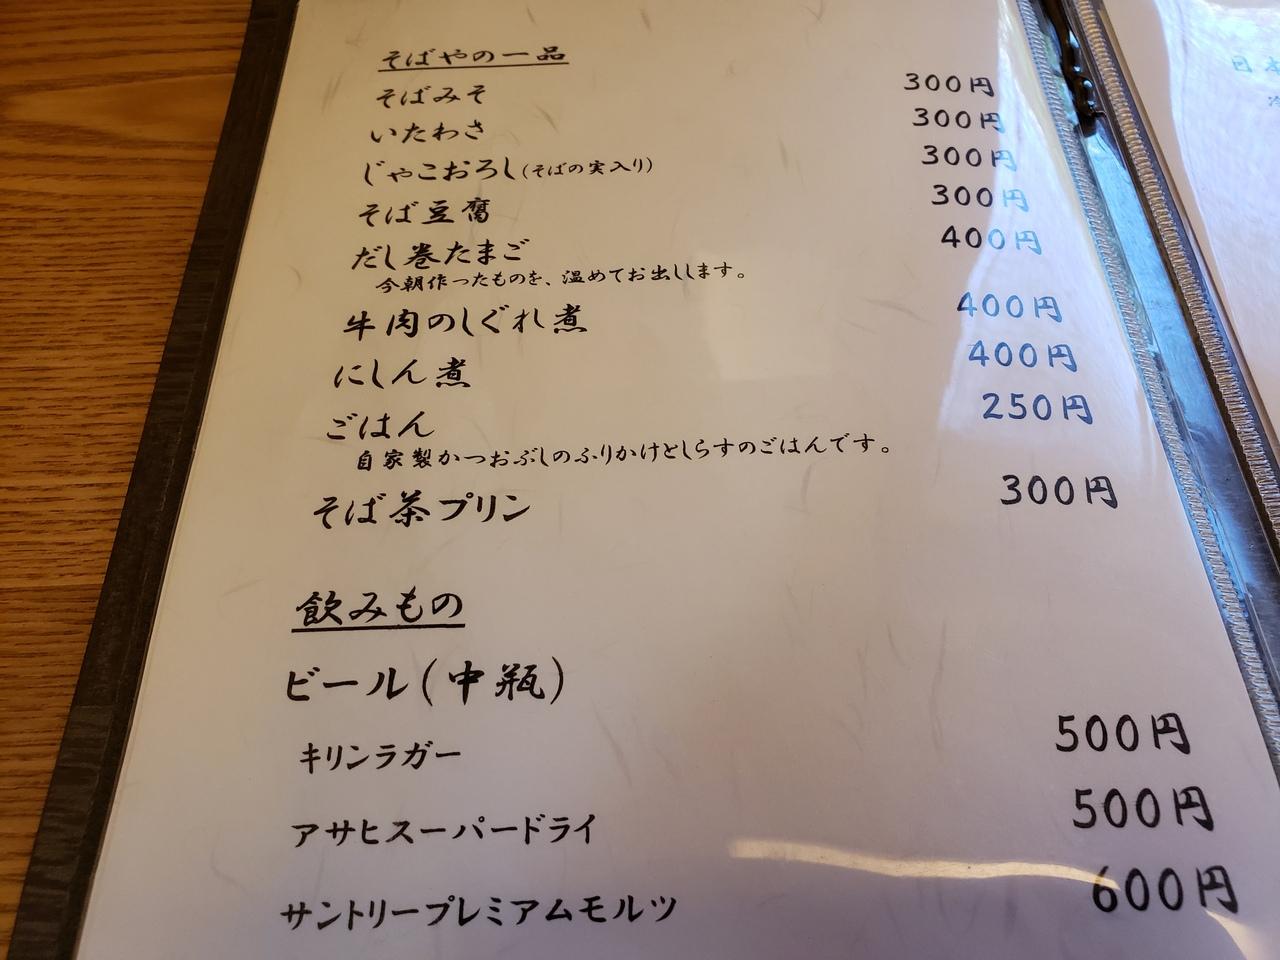 そばやの一品
そばみそ 300円
いたわさ 300円
じゃこおろし(そばの実入り) 300円
そば豆腐 300円
だし巻たまご 400円
今朝作ったものを、温めてお出しします。
牛肉のしぐれ煮 400円
にしん煮 400円
ごはん 250円
自家製かつおぶしのふりかけとしらすのごはんです。
そば茶プリン 300円
飲みもの
ビール(中瓶)
キリンラガー 500円
アサヒスーパードライ 500円
サントリープレミアムモルツ 600円
日本